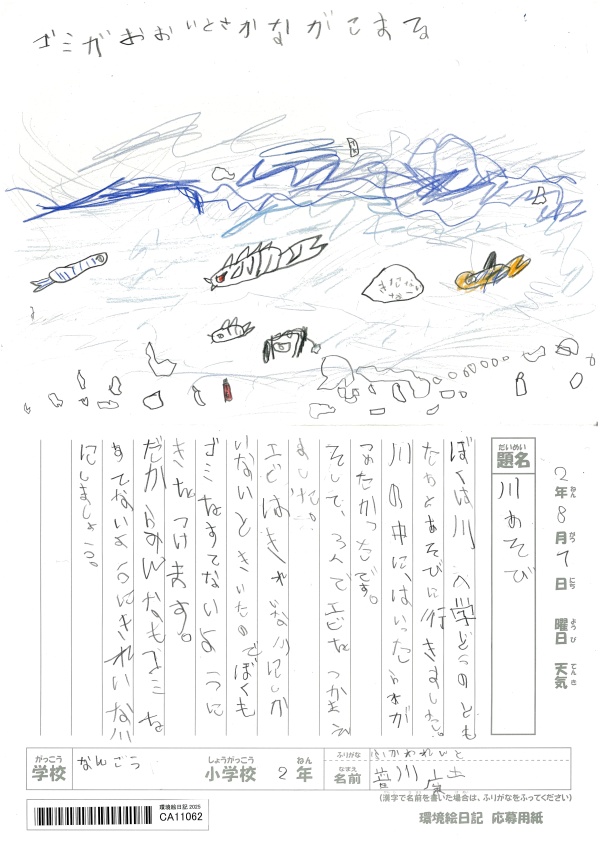 ゴミがおおいとさかながこまる
きたない
なー
2年8月7日 曜日 天気
ねん がつ にち ようび てんき
だいめい
題名
川あそび
ぼくは川へ学どうのとも
だちとあそびに行きました。
川の中に、はいったら水が
つめたかったです。
そして、みんなでエビをつかまえ
ました。
エビはきれいな川にしか
いないときいたのでぼくも
ゴミをすてないように
きをつけます。
だからみんなもゴミを
すてないようにきれいな川
にしましょう。
がっこう
学校
なんごう
しょうがっこう
小学校
ねん
2年
ふりがな
なまえ
名前
(漢字で名前を書いた場合は、ふりがなをふってください)
環境絵日記 2025
CA11062
環境絵日記 応募用紙